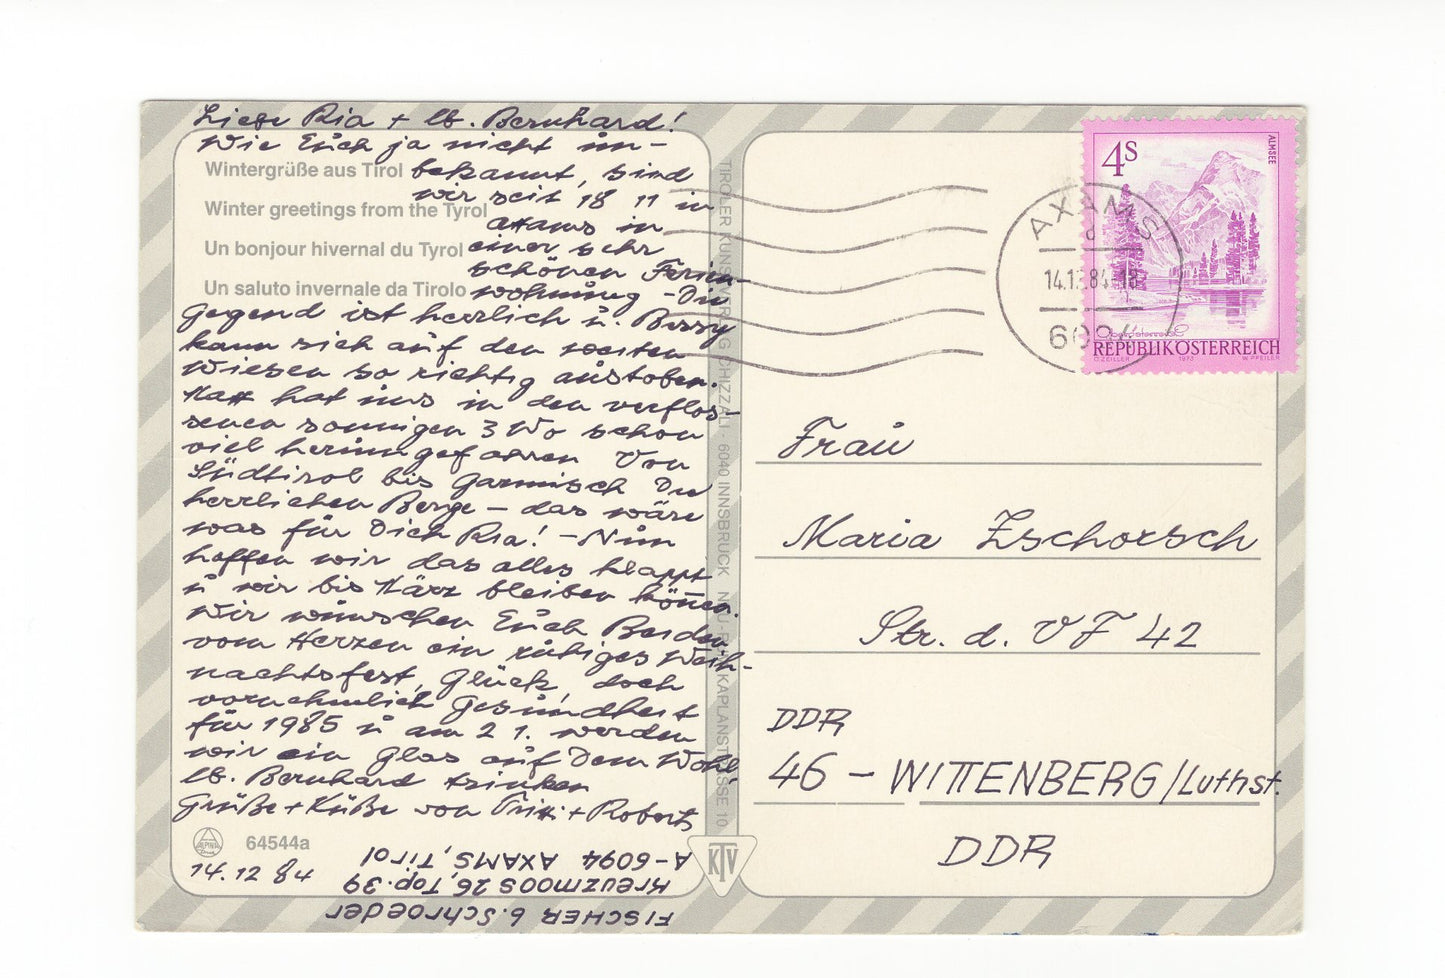 Liebe Ria + lb. Bernhard!
Wie Euch ja nicht un-
Wintergrüße aus Tirol bekannt, sind
wir seit 18 11 in
Winter greetings from the Tyrol
Axams in
Un bonjour hivernal du Tyrol einer sehr
schönen Ferien-
Un saluto invernale da Tirolo wohnung – Die
Gegend ist herrlich u.
kann sich auf den weiten
Wiesen so richtig austoben.
hat uns in den verflos-
senen sonnigen 3 Wo schon
viel herumgefahren Von
Südtirol bis Garmisch Die
herrlichen Berge – das wäre
was für Dich Ria! – Nun
hoffen wir das alles klappt
u wir bis März bleiben können.
Wir wünschen Euch Beiden
vom Herzen ein ruhiges Weih-
nachtsfest, Glück, doch
vornehmlich Gesundheit
für 1985 u am 2 1. werden
wir ein Glas auf Dein Wohl
lb. Bernhard trinken
Grüße + Küße von + Roberts
ALPINA
64544a
14.12 84
FISCHER b. Schroeder
Kreuzmoos 26, Top. 39
A-6094 AXAMS, Tirol
TIROLER KUNSTVERLAG CHIZZALI - 6040 INNSBRUCK NEU-RUM KAPLANSTRASSE 10
KTV
4S
ALMSEE
AXAMS
14.12.84-18
6094
Oberösterreich
REPUBLIK ÖSTERREICH
O. ZEILLER 1973 W. PFEILER
Frau
Maria Zschorsch
Str. d. VF 42
DDR
46 – WITTENBERG/Luthst.
DDR